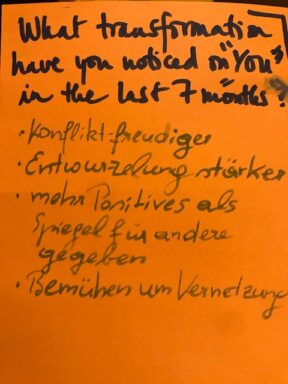 What transformation
have you noticed on "YOU"
in the last 7 months?
• Konfliktfreudiger
• Entwurzelung stärker
• mehr Positives als
Spiegel für andere
gegeben
• Bemühen um Vernetzung